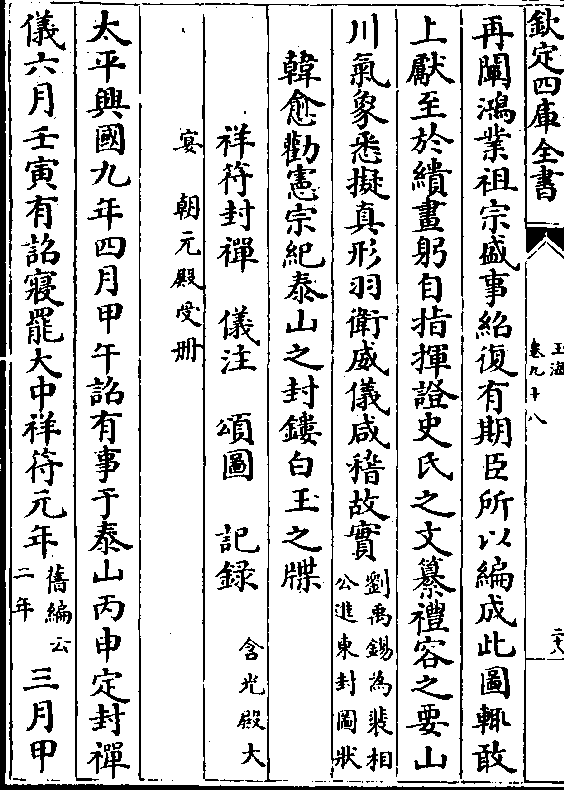 欽定四庫全書
玉海
卷九十八
二十八
再闡鴻業祖宗盛事紹復有期臣所以編成此圖輒敢
上獻至於繢畫躬自指揮證史氏之文纂禮容之要山
川氣象悉擬真形羽衛威儀咸稽故實劉禹錫為裴相公進東封圖狀
韓愈勸憲宗紀泰山之封鏤白玉之牒
祥符封禪 儀注 頌圖 記録 含光殿大
宴 朝元殿受冊
太平興國九年四月甲午詔有事于泰山丙申定封禪
儀六月壬寅有詔寢罷大中祥符元年舊編云二年三月甲